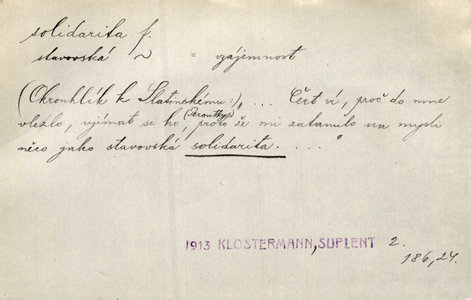 solidarita f.
stavovská ~ = vzájemnost
(Okrouhlík k Slatinskému:) „... Čert ví, proč do mne
vlezlo, ujímat se ho (Peroutky), proto že mi zatanulo na mysli
něco jako stavovská solidarita. ...."
1913 KLOSTERMANN, SUPLENT 2.
186, 24.